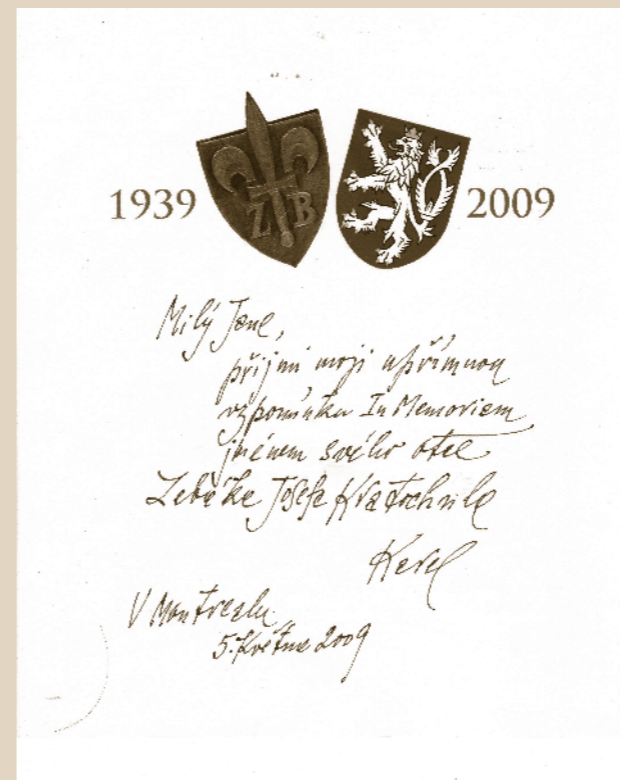 1939 2009
Z B
Milý Jene,
přijmi moji upřímnou
vzpomínku In Memoriam
jménem svého otce
Zebúke Josefa Kratochvila
Karel
V Montrealu
5. Května 2009